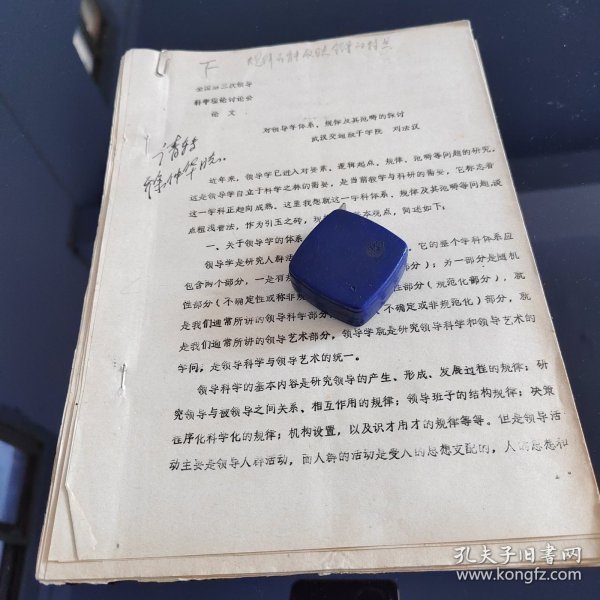 下
全国第三次领导
科学理论讨论会
论 文
对领导学体系、规律及其范畴的探讨
武汉交通政干学院 刘法汉
请转
近年来，领导学已进入对要素、逻辑起点、规律、范畴等问题的研究，
这是领导学自立于科学之林的需要，是当前教学与科研的需要，它标志着
这一学科正趋向成熟。这里我想就这一学科体系、规律及其范畴等问题，谈
点粗浅看法，作为引玉之砖，现 本观点，简述如下：
一、关于领导学的体系
领导学是研究人群活 它的整个学科体系应
包含两个部分，一是有规 部分）；另一部分是随机
性部分（不确定性或称非规 性部分（规范化部分），就
是我们通常所讲的领导科学部分 不确定或非规范化）部分，就
是我们通常所讲的领导艺术部分，领导学就是研究领导科学和领导艺术的
学问，是领导科学与领导艺术的统一。
领导科学的基本内容是研究领导的产生、形成、发展过程的规律；研
究领导与被领导之间关系、相互作用的规律；领导班子的结构规律；决策
程序化科学化的规律；机构设置，以及识才用才的规律等等。但是领导活
动主要是领导人群活动，而人群的活动是受人的思想支配的，人的思想和
孔夫子旧书网
www.kongfz.com